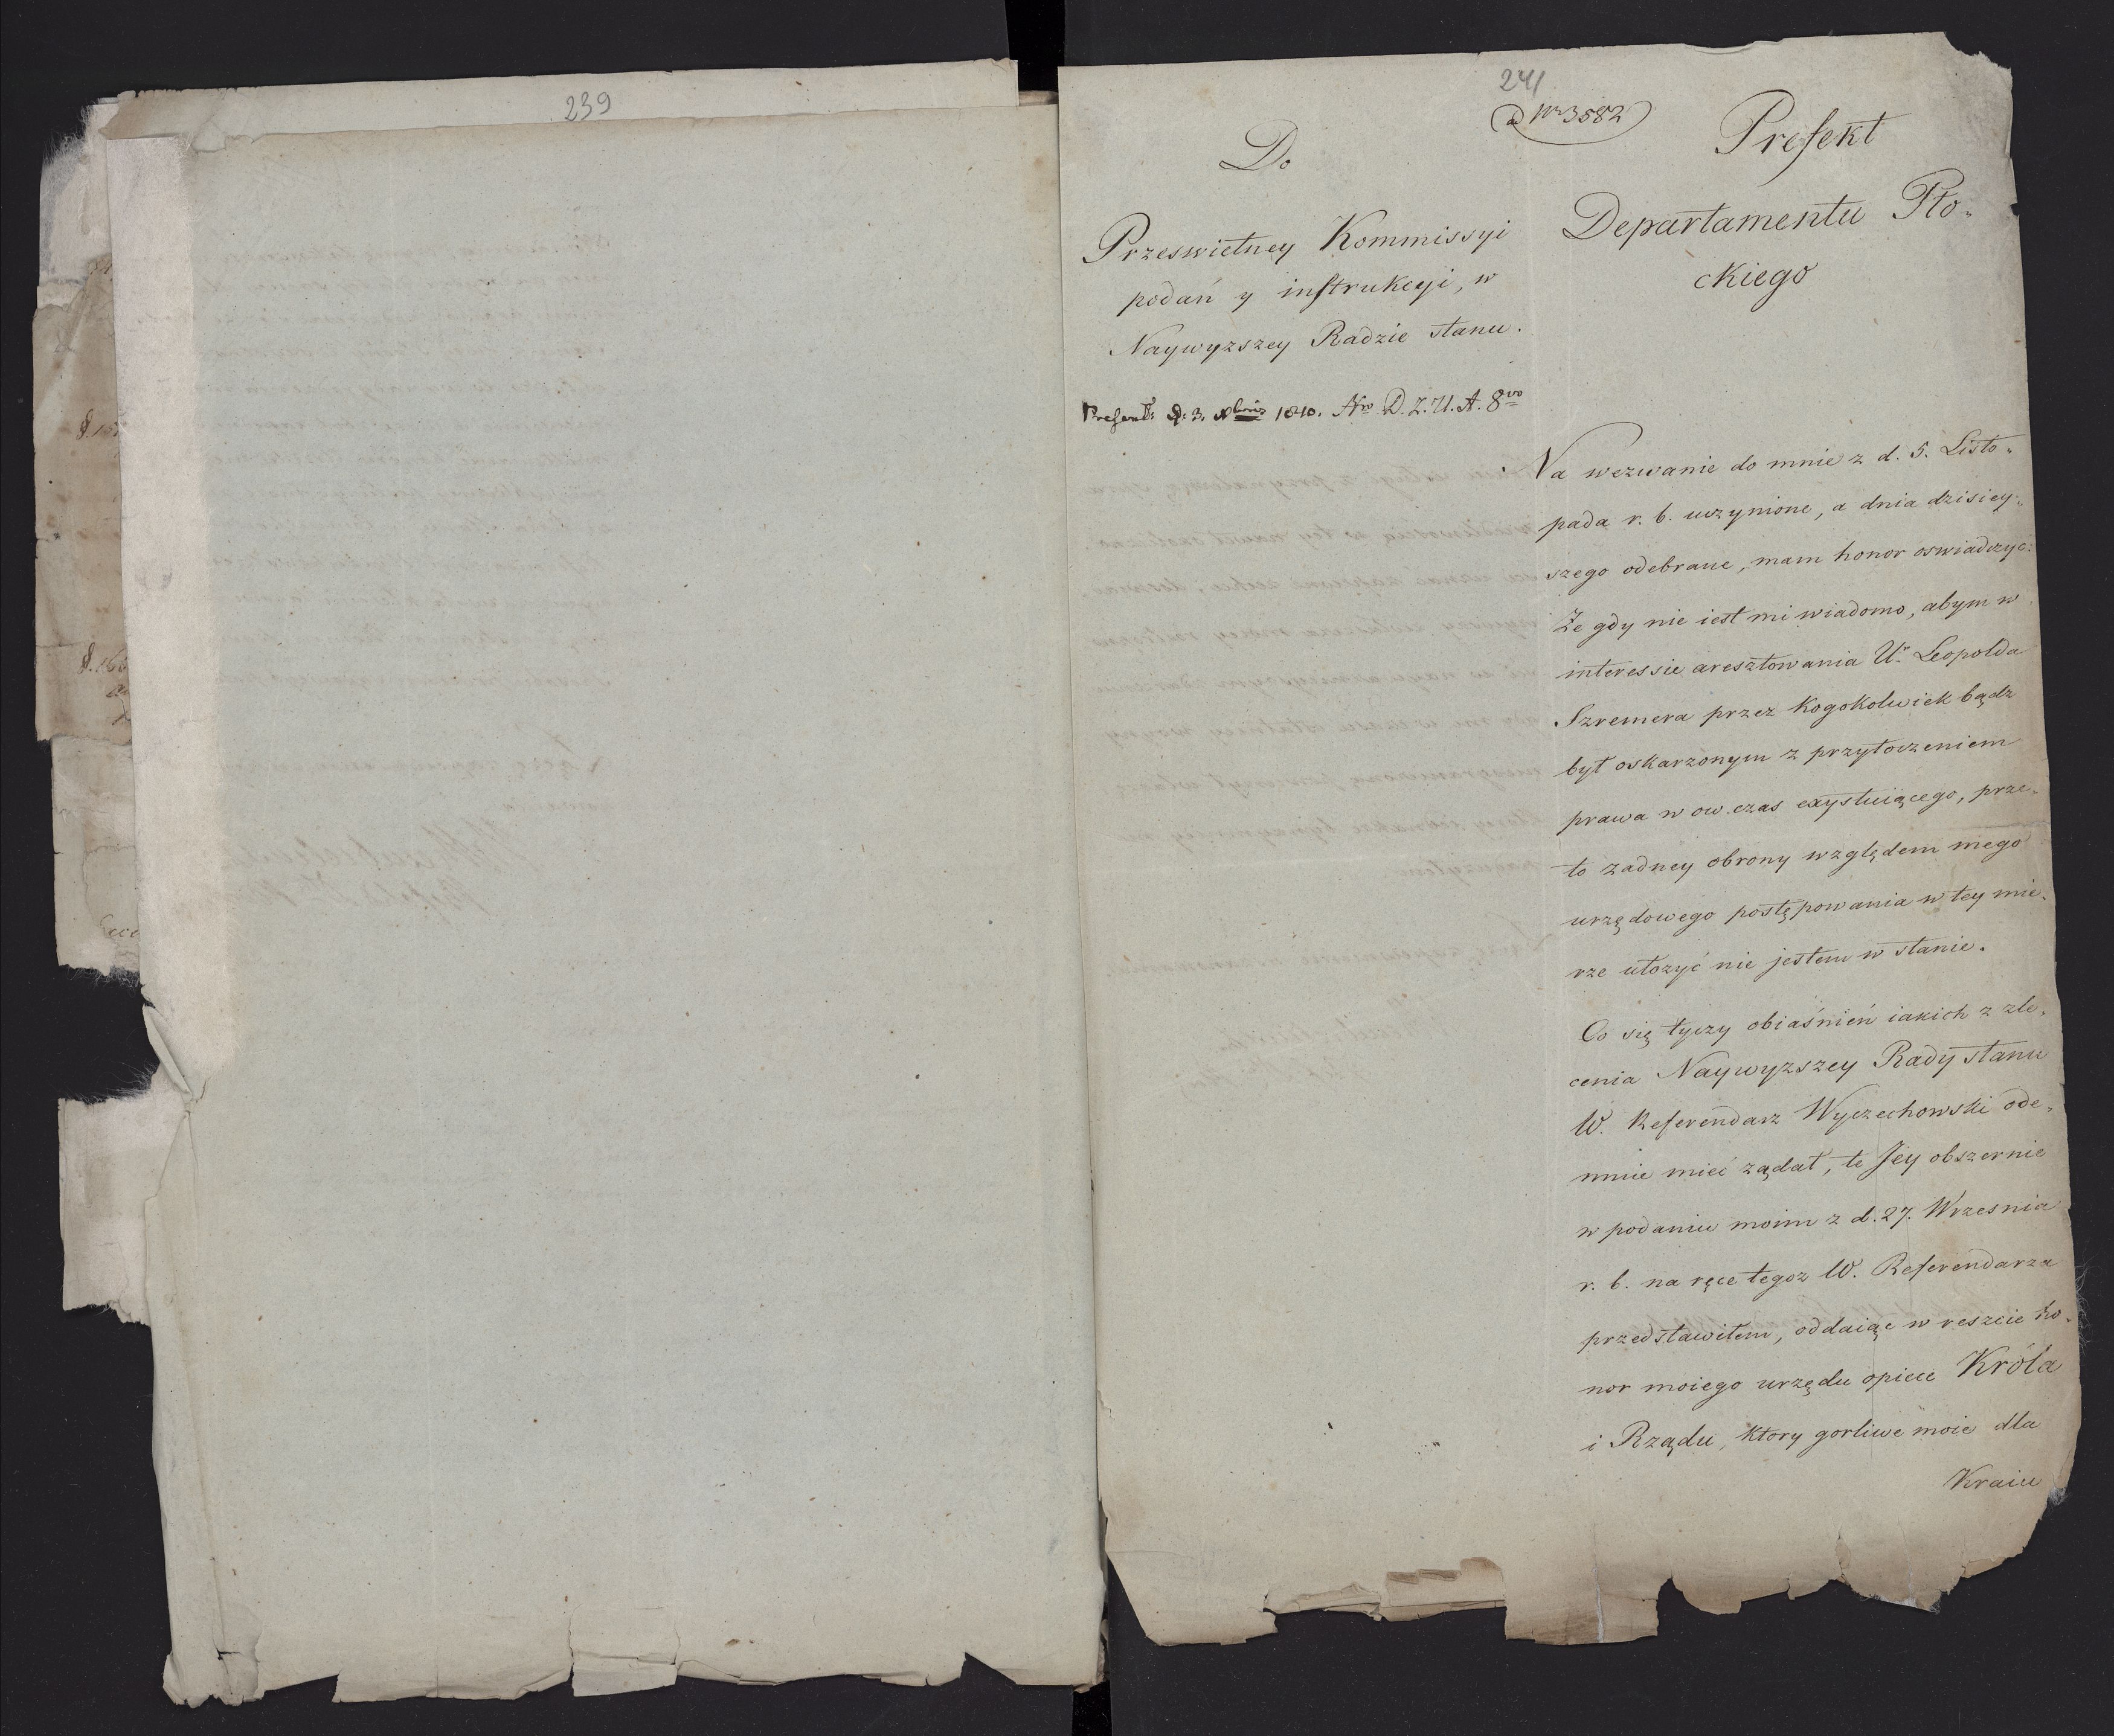 239
241
ad Nr 3582
Do
Przeswietney Kommissyi
podań y instrukcyi, w
Naywyzszey Radzie stanu.
Present: d: 3. Xbris 1810. Nro D. Z. U. A. 8vo
Prefekt
Departamentu Pło„
ckiego
Na wezwanie do mnie z d. 5. Listo„
pada r. b. uczynione, a dnia dzisiey„
szego odebrane, mam honor oswiadczyć:
Ze gdy nie iest mi wiadomo, abym w
interessie aresztowania Ur. Leopolda
Szremera przez kogokolwiek bądz
był oskarzonym z przytoczeniem
prawa w ow czas exystuiącego, prze„
to zadney obrony względem mego
urzędowego postępowania w tey mie„
rze ułozyć nie jestem w stanie.
Co się tyczy obiaśnień iakich z zle„
cenia Naywyzszey Rady stanu
W. Referendarz Wyczechowski ode„
mnie mieć ządał, te Jey obszernie
w podaniu moim z d. 27. Wrzesnia
r. b. na ręce tegoz W. Referendarza
przedstawiłem, oddaiąc w reszcie ho„
nor moiego urzędu opiece Króla
i Rządu, ktory gorliwe moie dla
Kraiu